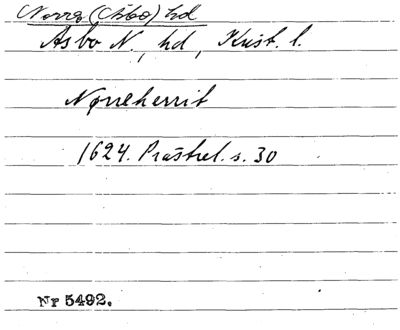 Norra (Åsbo) hd
Åsbo N., hd, Krist. l.
Nørreherrit
1624. Prästrel. s. 30
Nr 5492.